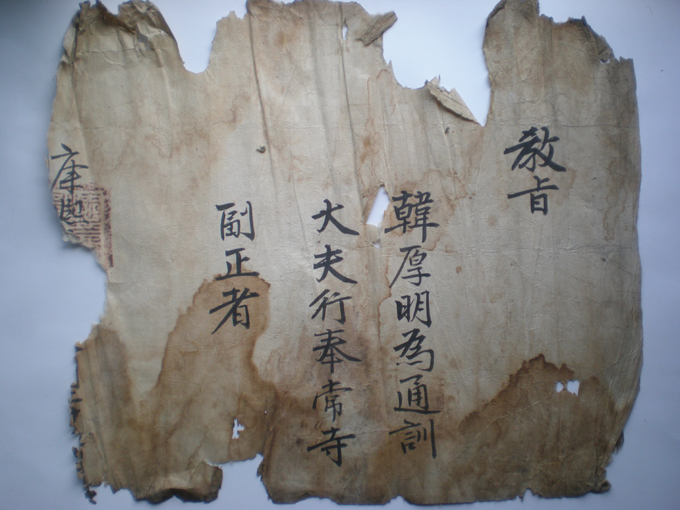 敎旨
韓厚明為通訓
大夫行奉常寺
副正者
康熙